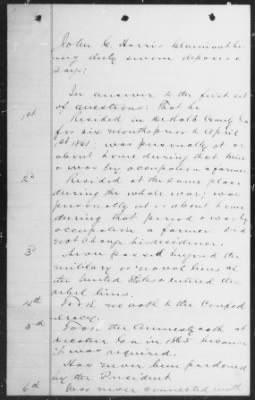 John C. Harris claimant be
ing duly sworn deposes &
says:
In answer to the first set
of questions: That he
1st Resided in DeKalb County Ga
for six months prior to April
1st 1861; was personally at or
about home during that time
& was by occupation a farmer.
2d Resided at the same place
during the whole war; was
personally at or about home
during that period & was by
occupation a farmer did
not change his residence.
3d Never passed beyond the
military or naval lines of
the United States & entered the
rebel lines.
4th Took no oath to the Confed
eracy.
5th Took the Amnesty oath at
Decatur Ga in 1865 because
it was required.
Has never been pardoned
by the President.
6th Was never connected with